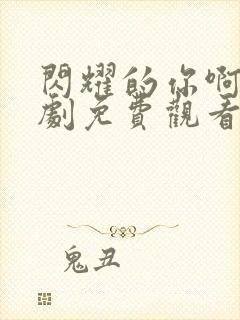 閃耀的你啊
劇免費觀看
鬼丑